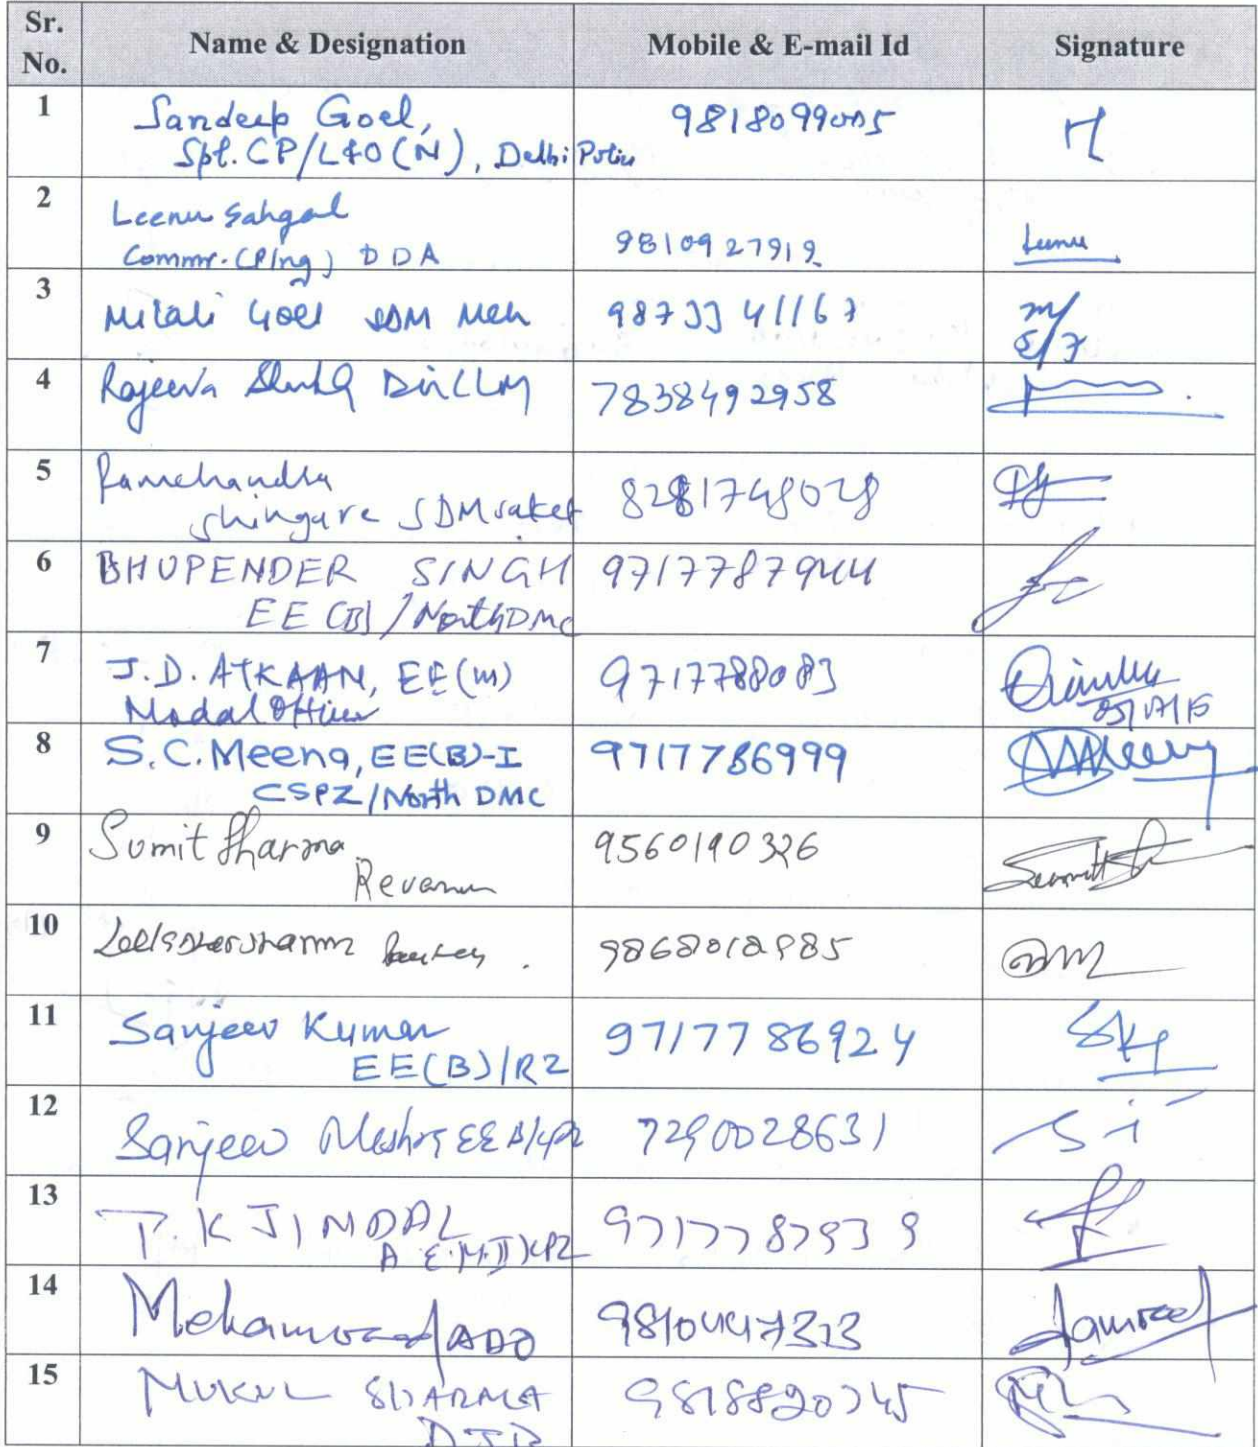 Sr. No.
Name & Designation
Mobile & E-mail Id
Signature
1
Sandeep Goel,
Spl. CP/L&O(N), Delhi Police
9818099005
2
Leenu Sahgal
Commr. (Plng) DDA
9810927919
Leenu
3
Mitali Goel SDM Meh
9873341167
4
Rajeeva DirLLM
7838492958
5
Ramchandra
Shingare SDM Saket
8281748028
6
BHUPENDER SINGH
EE (B) / North DMC
9717787944
7
J.D. ATKAAN, EE(M)
Nodal Officer
9717788083
8
S.C. Meena, EE(B)-I
CSPZ/North DMC
9717786999
9
Sumit Sharma
Revenue
9560190326
10
11
Sanjeev Kumar
EE(B)/RZ
9717786924
12
Sanjeev Mishra EE
7290028631
13
P.K JINDAL
9717787939
14
ADO
15
MUKUL SHARMA
DJB
9818820745